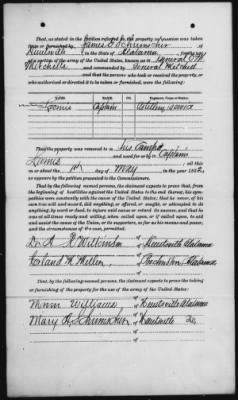 That, as stated in the Petition referred to, the property in question was taken
or furnished, from James Schrimsher, of
Huntsville, in Alabama, for the use
of a portion of the army of the United States, known as General O M
Mitchells and commanded by General Mitchell
and that the persons who took or received the property, or
who authorized or directed it to be taken or furnished, were the following:
NAME. RANK. REGIMENT, CORPS, &c.
Loomis Captain Artillery
That the property was removed to his Camp
and used for or by Captain
Lumis; all this
on or about the 1st day of May, in the year 1862,
as appears by the petition presented to the Commissioners.
That by the following-named persons, the claimant expects to prove that, from
the beginning of hostilities against the United States to the end thereof, his sym-
pathies were constantly with the cause of the United States; that he never, of his
own free will and accord, did anything, or offered, or sought, or attempted to do
anything, by word or deed, to injure said cause or retard its success, and that he
was at all times ready and willing, when called upon, or if called upon, to aid
and assist the cause of the Union, or its supporters, so far as his means and power,
and the circumstances of the case, permitted.
Dr A R Wilkinson of Huntsville Alabama
of Alabama
That by the following-named persons, the claimant expects to prove the taking
or furnishing of the property for the use of the army of the United States:
Williams of Huntsville Alabama
Mary Schrimsher of Huntsville Do